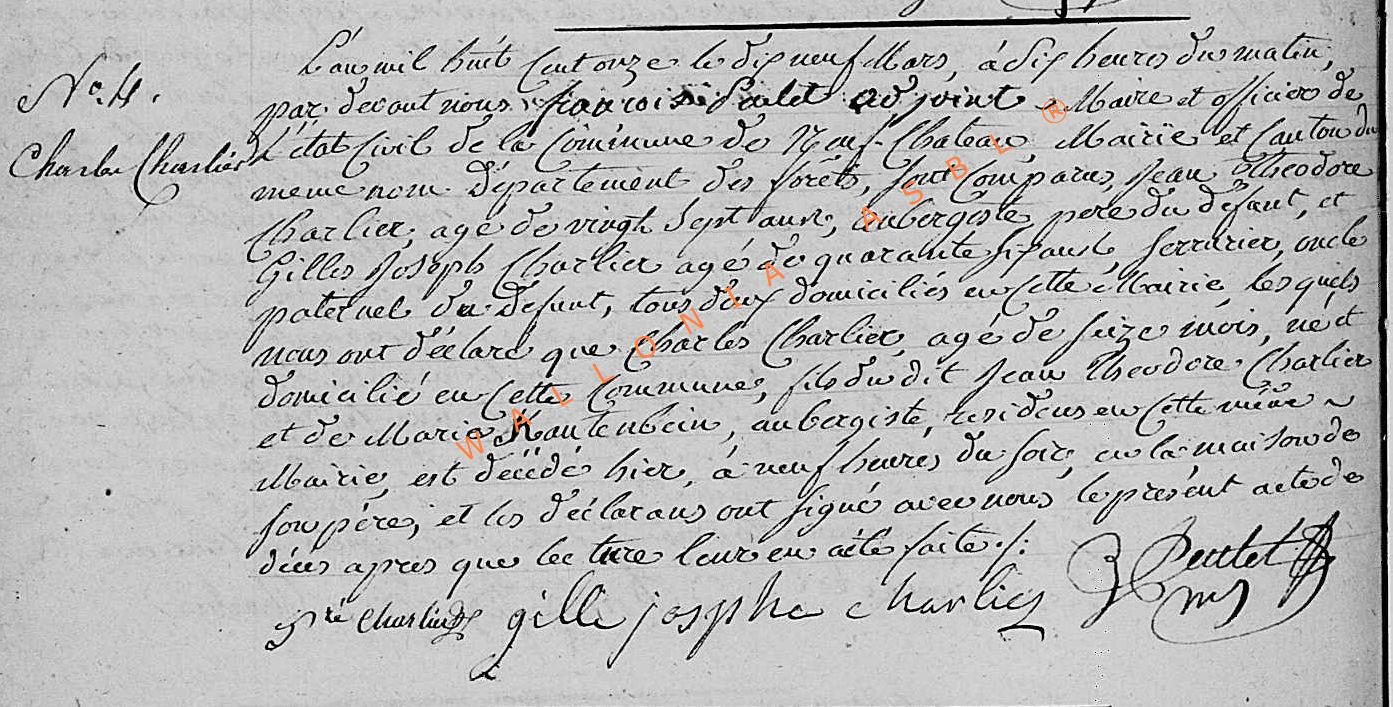 L'an mil huit cent onze le dix neuf Mars, à six heures du matin,
par devant nous françois Poulet adjoint Maire et officier de
L'état Civil de la Commune de Neuf-Chateau Mairie et Canton du
meme nom Département des forêts, sont Comparus, Jean Theodore
Charlier, agé de vingt sept ans, aubergiste, pere du défunt, et
Gilles Joseph Charlier agé de quarante six ans, serrurier, oncle
paternel du défunt, tous deux domiciliés en Cette Mairie, les quels
nous ont déclaré que Charles Charlier, agé de seize mois, né et
domicilié en Cette Commune, fils du dit Jean Theodore Charlier
et de Marie Kautenbein, aubergiste, residens en Cette même
Mairie, est décédé hier, à neuf heures du soir, en la maison de
son père, et les déclarans ont signé avec nous le présent acte de
décès apres que lecture leur en a été faite ./:
N.o 4.
Charles Charlier
Charlier gille josephe charlier
WALLONIA ASBL ®